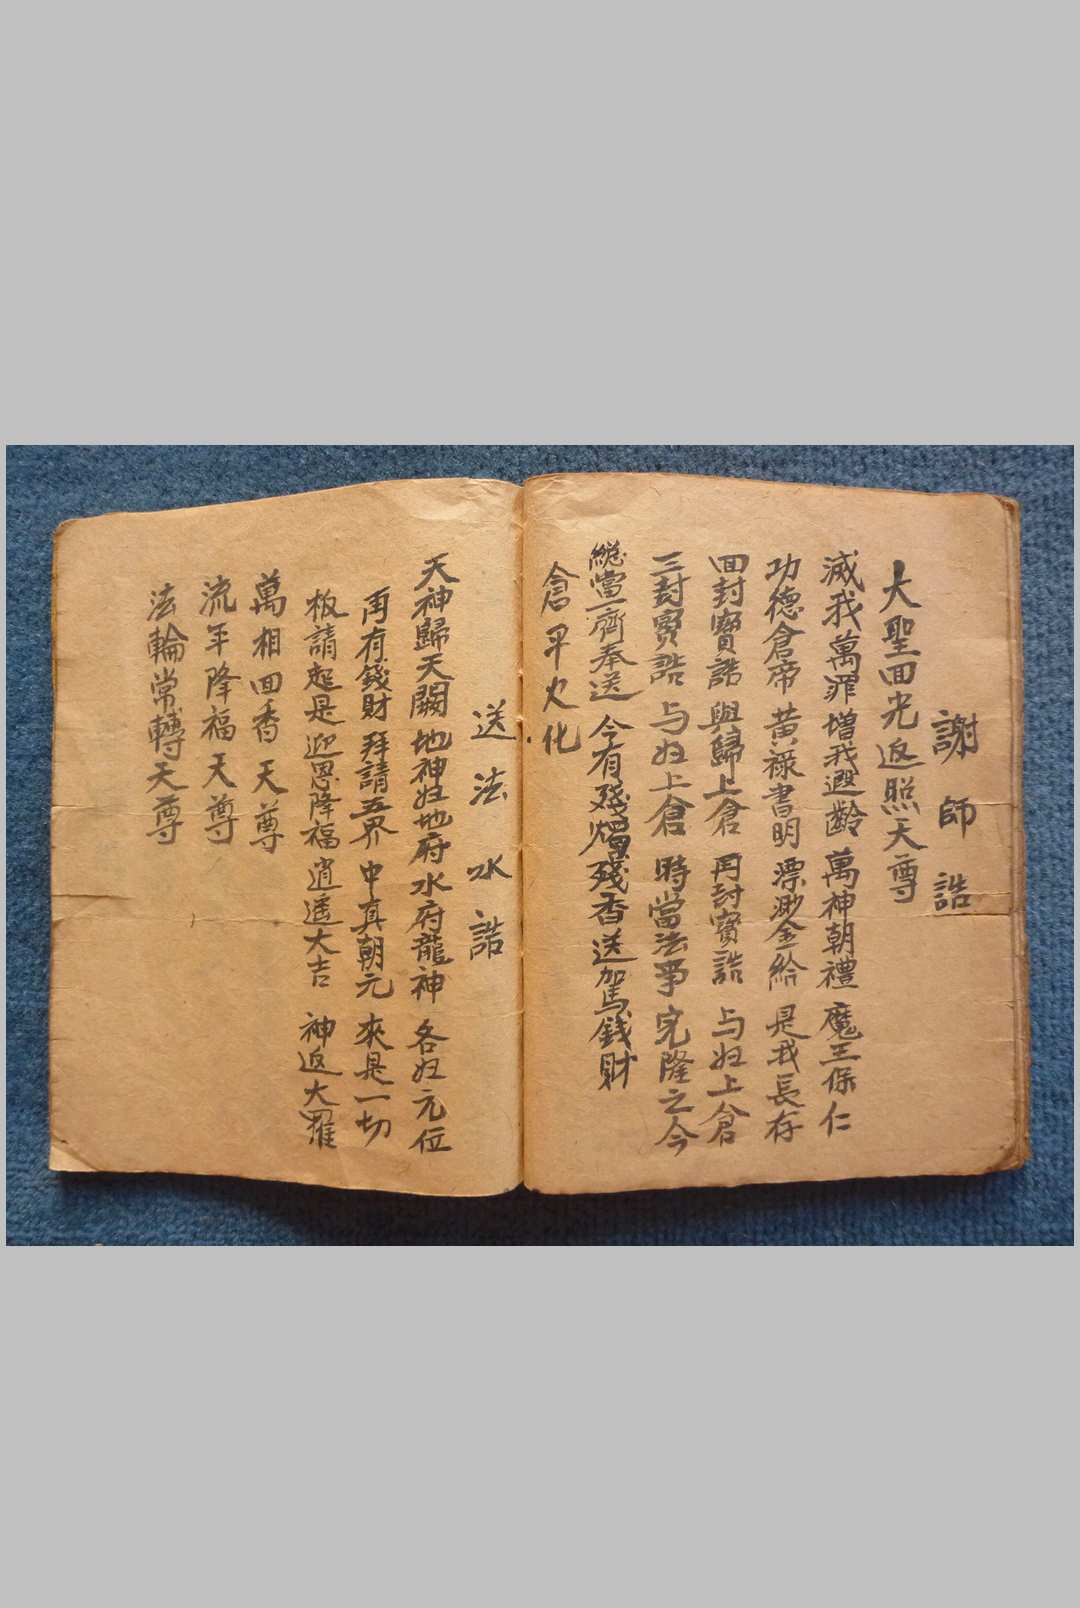 謝師誥
大聖回光返照天尊
滅我萬罪增我遐齡 萬神朝禮 魔王保仁
功德倉帝 黄祿書明 漂渺金給 是我長存
回封寳誥 與歸上倉 再封寳誥 与妇上倉
三封寳誥 与妇上倉 時當法事 完隆之今
總當一齊奉送 今有殘燭殘香送駕錢財
倉平火化
送法水誥
天神歸天闕 地神妇地府 水府龍神 各妇元位
再有錢財 拜請五界 中真朝元 來是一切
板請起是 迎恩降福 逍遥大吉 神返大羅
萬相回香天尊
流年降福天尊
法輪常轉天尊